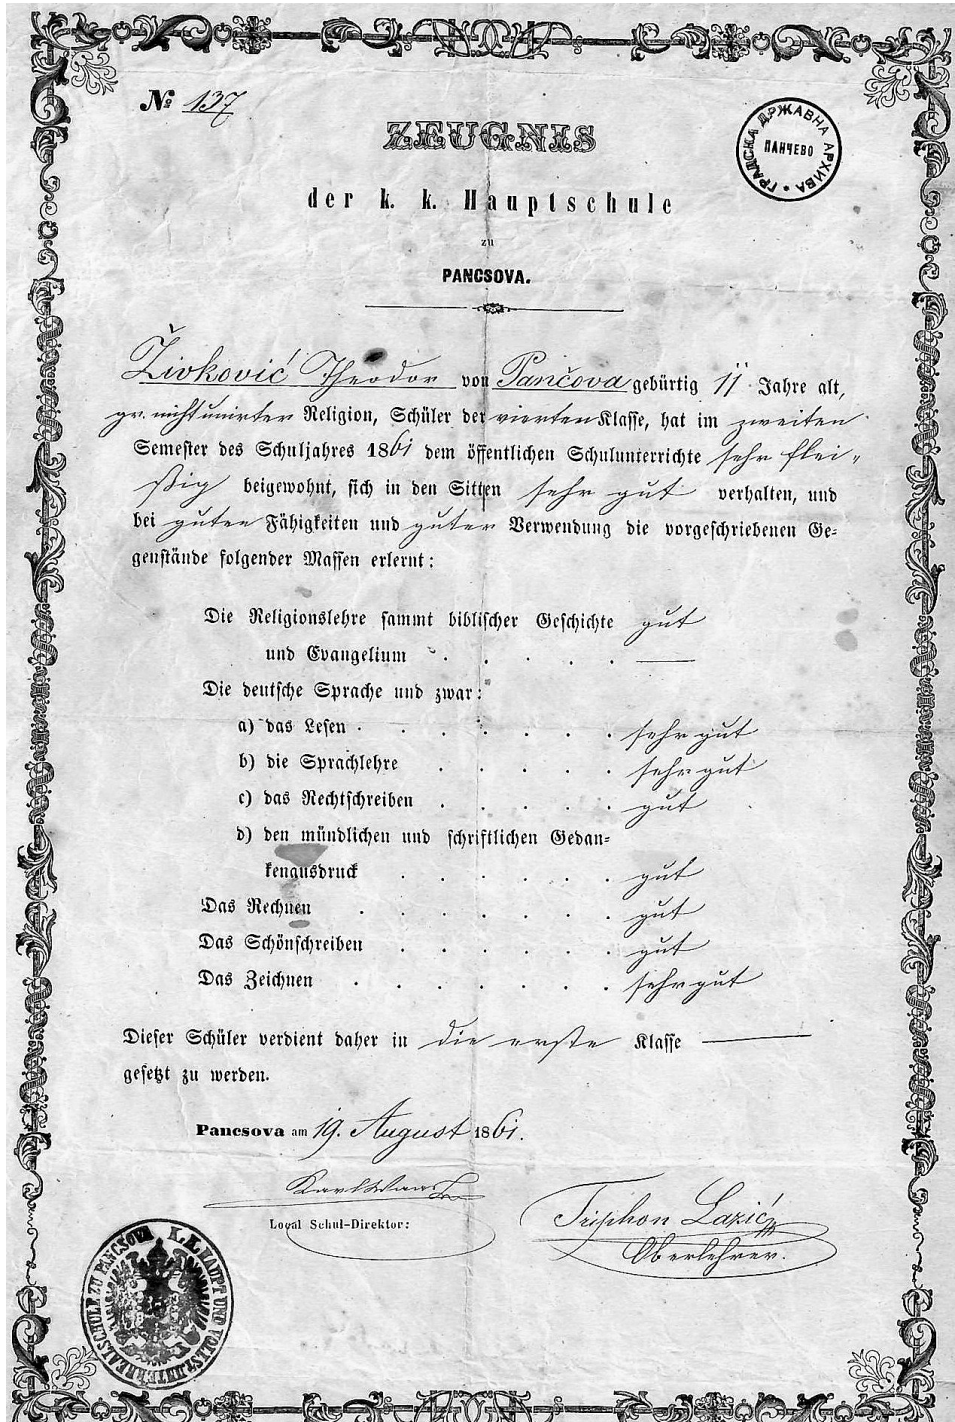 № 137
ZEUGNIS
ГРАДСКА ДРЖАВНА АРХИВА
ПАНЧЕВО
der k. k. Hauptschule
zu
PANCSOVA.
Živković Theodor von Pančova gebürtig 11 Jahre alt,
gr. nicht unirter Religion, Schüler der vierten Klasse, hat im zweiten
Semester des Schuljahres 1861 dem öffentlichen Schulunterrichte sehr flei-
ßig beigewohnt, sich in den Sitten sehr gut verhalten, und
bei guten Fähigkeiten und guter Verwendung die vorgeschriebenen Ge-
genstände folgender Massen erlernt:
Die Religionslehre sammt biblischer Geschichte gut
und Evangelium . . . . . —
Die deutsche Sprache und zwar:
a) das Lesen . . . . . . . sehr gut
b) die Sprachlehre . . . . . sehr gut
c) das Rechtschreiben . . . . . gut
d) den mündlichen und schriftlichen Gedan-
kenausdruck . . . . . . gut
Das Rechnen . . . . . . . gut
Das Schönschreiben . . . . . . gut
Das Zeichnen . . . . . . . sehr gut
Dieser Schüler verdient daher in die erste Klasse —
gesetzt zu werden.
Pancsova am 19. August 1861.
Karl
Local Schul-Direktor:
Triphon Lazić
Oberlehrer.
K. K. HAUPT UND VOLLST. UNTERREALSCHULE ZU PANCSOVA